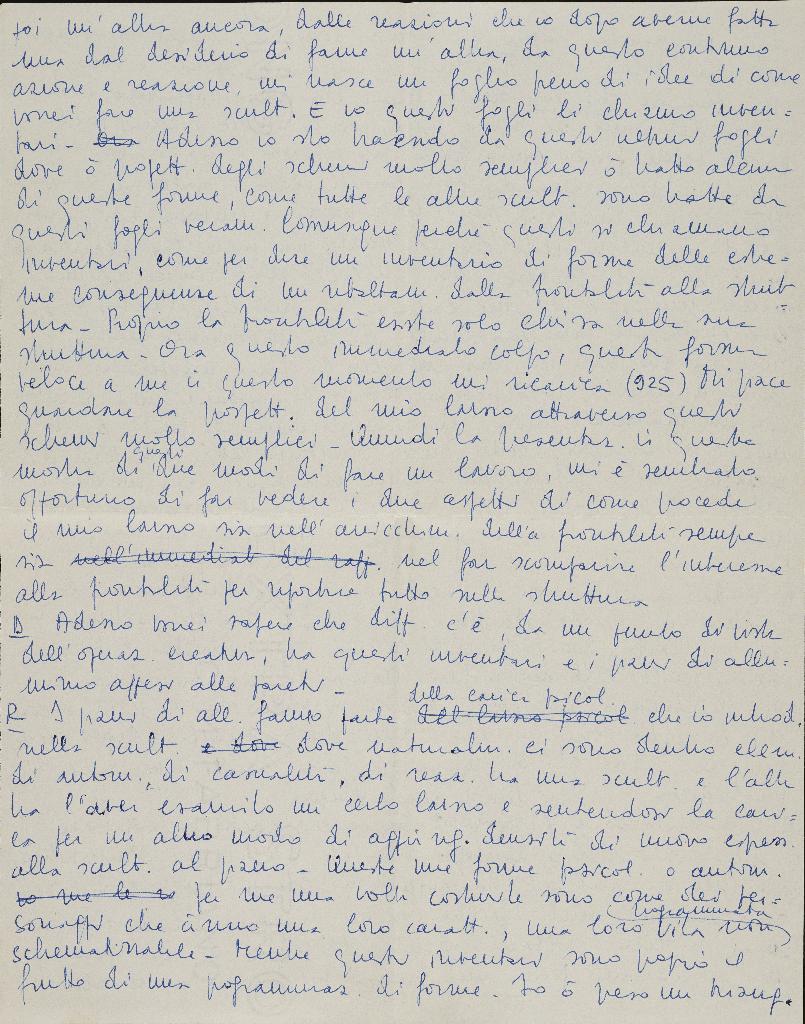 poi un'altra ancora, dalle reazioni che io dopo averne fatta
una dal desiderio di farne un'altra, da questo continuo
azione e reazione, mi nasce un foglio pieno di idee di come
vorrei fare una scult. E io questi fogli li chiamo inven=
tari - Ora Adesso io sto traendo da questi ultimi fogli
dove ò progett. degli schemi molto semplici ò tratto alcune
di queste forme, come tutte le altre scult. sono tratte da
questi fogli veram. Comunque perché questi si chiamano
inventari, come per dire un inventario di forme delle estre=
me conseguenze di un ribaltam. dalla frontalità alla strut=
tura - Proprio la frontalità esiste solo chiusa nella sua
struttura - Ora questo immediato colpo, questa forma
veloce a me in questo momento mi ricarica (925) Mi piace
guardare la progett. del mio lavoro attraverso questi
schemi molto semplici - Quindi la presentaz. in questa
mostra di questi due modi di fare un lavoro, mi è sembrato
opportuno di far vedere i due aspetti di come procede
il mio lavoro sia nell'arricchim. della frontalità sempre
sia nell'immediat. del raff. nel far scomparire l'interesse
alla frontalità per riportare tutto sulla struttura
D Adesso vorrei sapere che diff. c'è, da un punto di vista
dell'operaz. creativa, tra questi inventari e i pani di allu=
minio appesi alle pareti -
della carica psicol.
R I pani di all. fanno parte del lavoro psicol che io introd.
nella scult. e dove dove naturalm. ci sono dentro elem.
di autom., di casualità, di reaz. tra una scult. e l'altra
tra l'aver esaurito un certo lavoro e sentendosi la cari=
ca per un altro modo di aggiung. densità di nuovo espress.
alla scult. al pano - Queste mie forme psicol. o autom.
io me le per me una volta costruite sono come dei per=
sonaggi che ànno una loro caratt., una loro vita programmata non
schematizzabile - Mentre questi inventari sono proprio il
frutto di una programmaz. di forme. Io ò preso un triang.